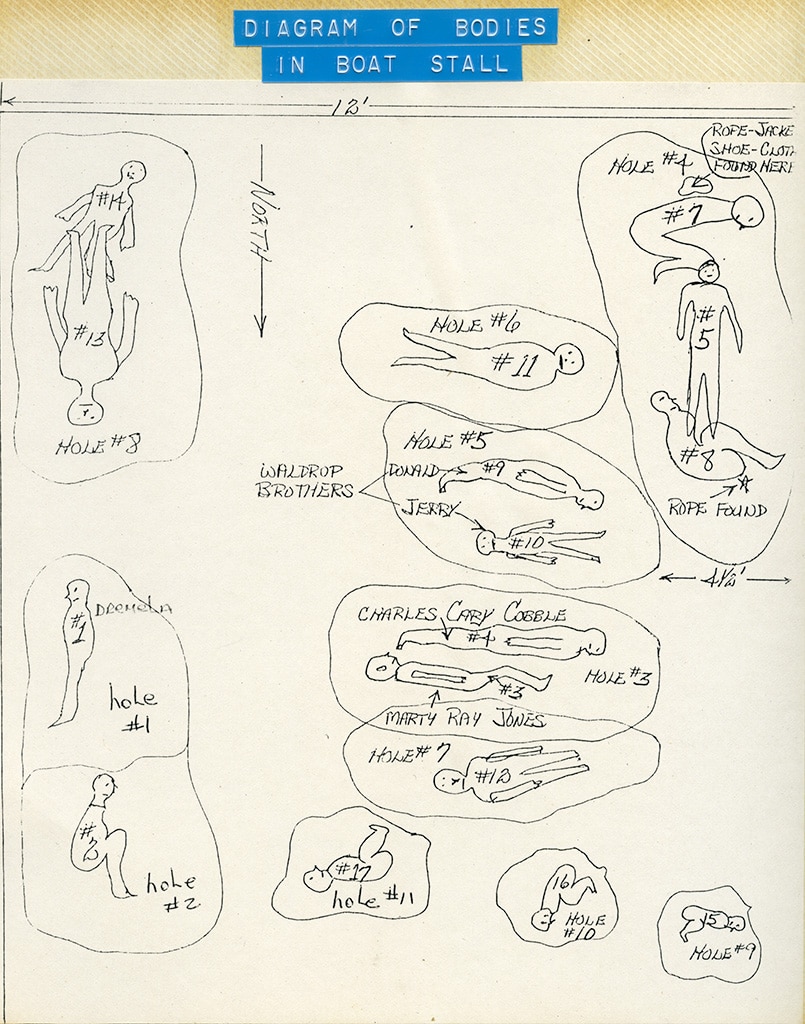 DIAGRAM OF BODIES
IN BOAT STALL
12'
ROPE-JACKE
SHOE-CLOTH
FOUND HERE
HOLE #4
#7
#14
NORTH
#5
#13
HOLE #6
#11
HOLE #8
HOLE #5
WALDROP
BROTHERS
DONALD
#9
JERRY
#10
#8
ROPE FOUND
4½'
#1
hole
#1
CHARLES CARY COBBLE
#4
HOLE #3
#3
MARTY RAY JONES
HOLE #7
#12
#2
hole
#2
#17
hole #11
16
HOLE
#10
15
HOLE #9